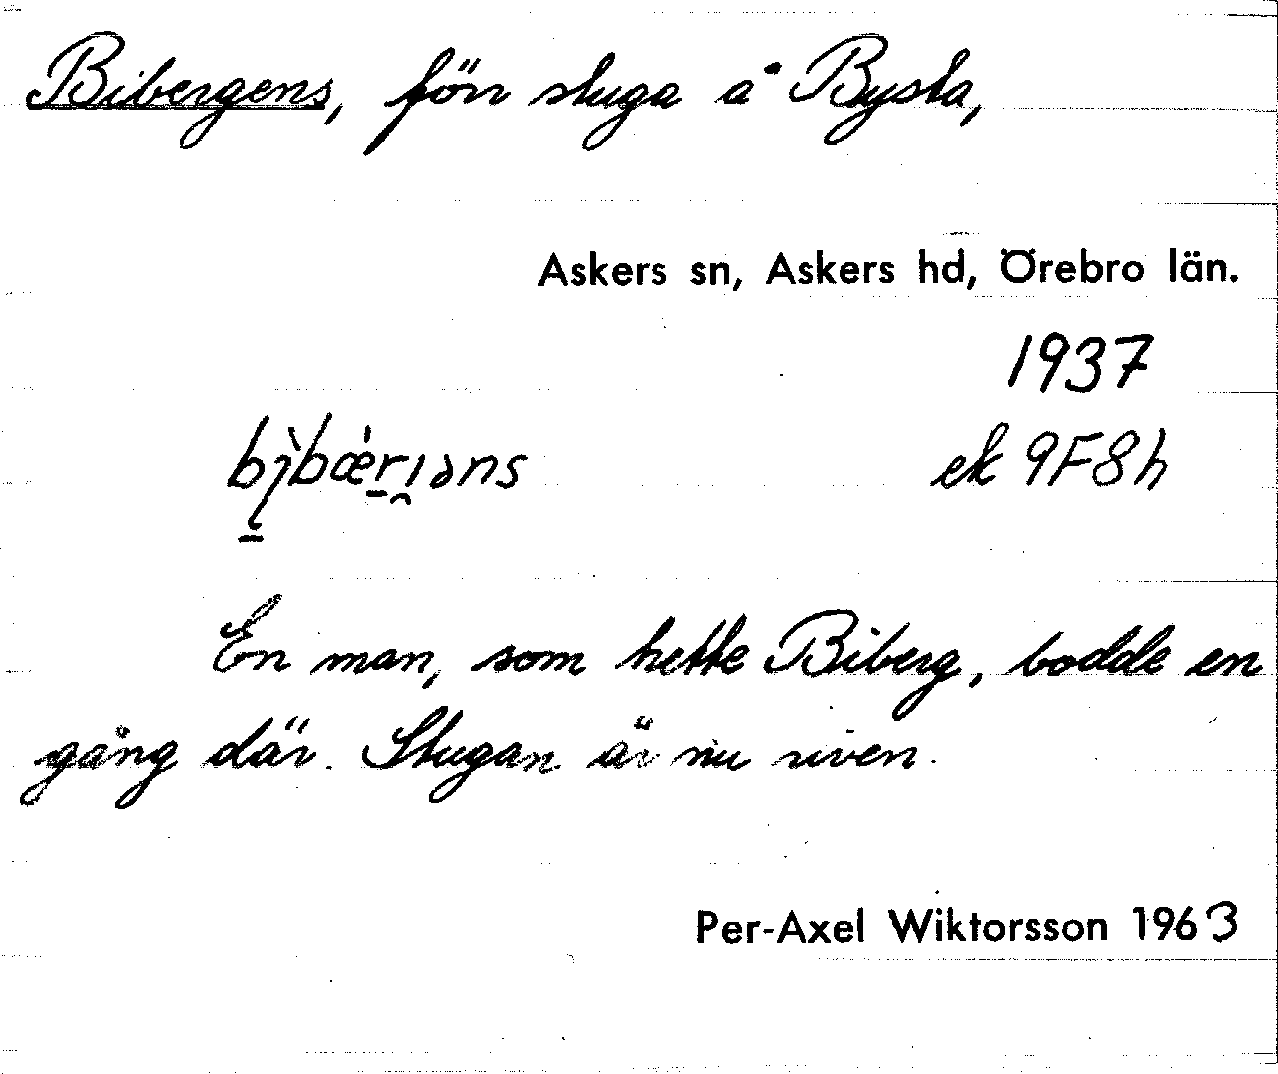 Bibergens, förr stuga å Bysta,
Askers sn, Askers hd, Örebro län.
1937
ek 9F8h
En man, som hette Biberg, bodde en
gång där. Stugan är nu riven.
Per-Axel Wiktorsson 1963